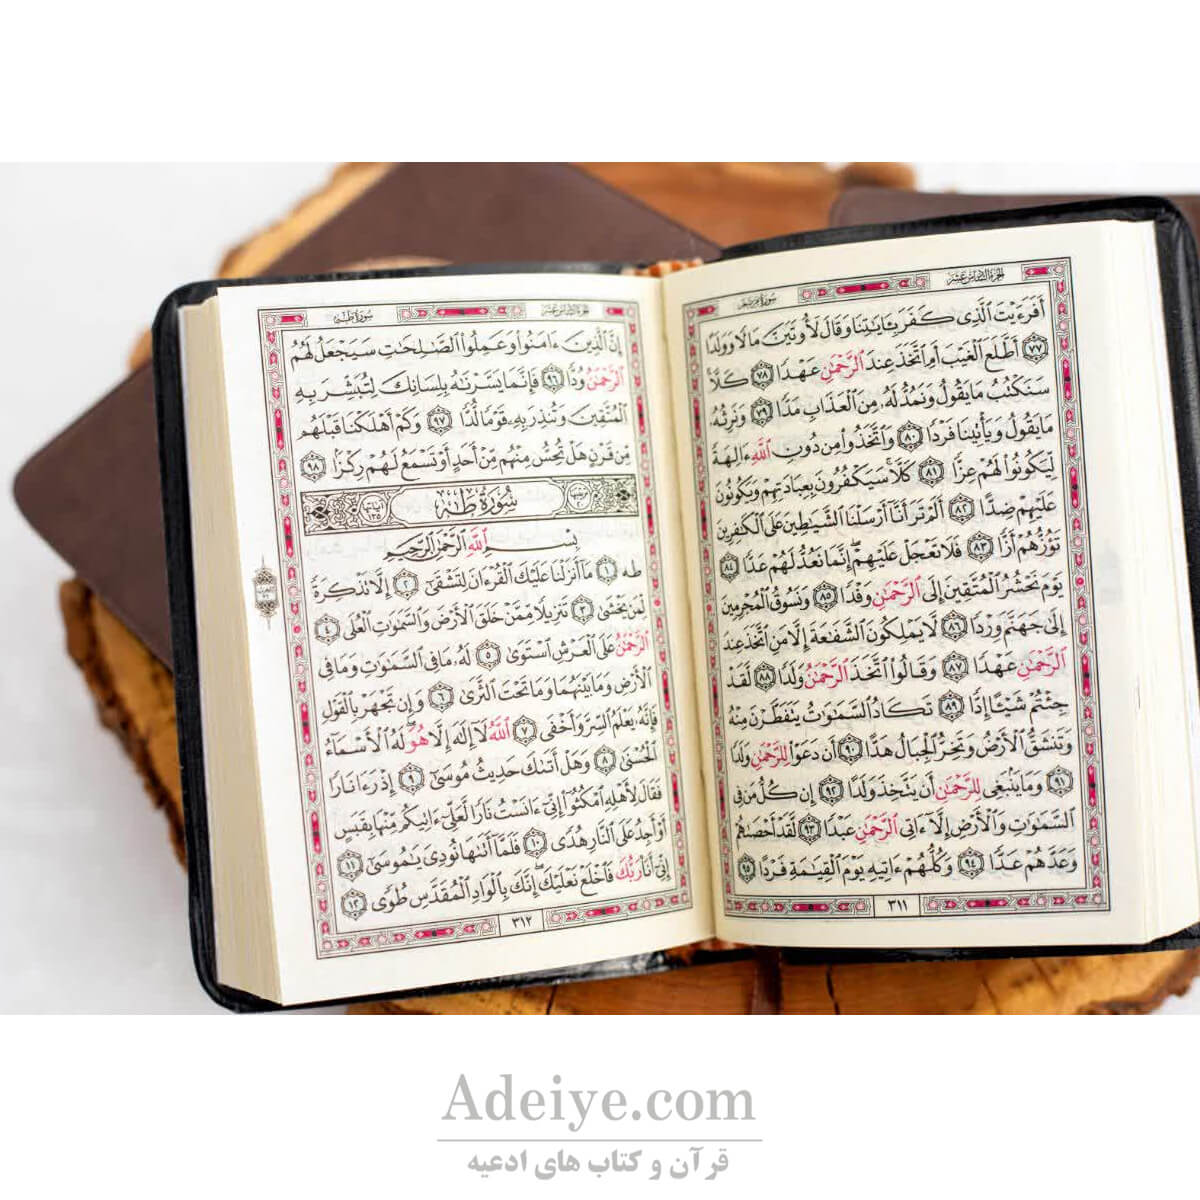 الجزء السادس عشر
سورة مريم
أَفَرَءَيْتَ الَّذِى كَفَرَ بِـَٔايَـٰتِنَا وَقَالَ لَأُوتَيَنَّ مَالًا وَوَلَدًا
﴿٧٧﴾ أَطَّلَعَ الْغَيْبَ أَمِ اتَّخَذَ عِندَ الرَّحْمَـٰنِ عَهْدًا ﴿٧٨﴾ كَلَّا
سَنَكْتُبُ مَا يَقُولُ وَنَمُدُّ لَهُۥ مِنَ الْعَذَابِ مَدًّا ﴿٧٩﴾ وَنَرِثُهُۥ
مَا يَقُولُ وَيَأْتِينَا فَرْدًا ﴿٨٠﴾ وَاتَّخَذُوا مِن دُونِ اللَّهِ ءَالِهَةً
لِّيَكُونُوا لَهُمْ عِزًّا ﴿٨١﴾ كَلَّا سَيَكْفُرُونَ بِعِبَادَتِهِمْ وَيَكُونُونَ
عَلَيْهِمْ ضِدًّا ﴿٨٢﴾ أَلَمْ تَرَ أَنَّا أَرْسَلْنَا الشَّيَـٰطِينَ عَلَى الْكَـٰفِرِينَ
تَؤُزُّهُمْ أَزًّا ﴿٨٣﴾ فَلَا تَعْجَلْ عَلَيْهِمْ إِنَّمَا نَعُدُّ لَهُمْ عَدًّا ﴿٨٤﴾
يَوْمَ نَحْشُرُ الْمُتَّقِينَ إِلَى الرَّحْمَـٰنِ وَفْدًا ﴿٨٥﴾ وَنَسُوقُ الْمُجْرِمِينَ
إِلَىٰ جَهَنَّمَ وِرْدًا ﴿٨٦﴾ لَّا يَمْلِكُونَ الشَّفَـٰعَةَ إِلَّا مَنِ اتَّخَذَ عِندَ
الرَّحْمَـٰنِ عَهْدًا ﴿٨٧﴾ وَقَالُوا اتَّخَذَ الرَّحْمَـٰنُ وَلَدًا ﴿٨٨﴾ لَّقَدْ
جِئْتُمْ شَيْـًٔا إِدًّا ﴿٨٩﴾ تَكَادُ السَّمَـٰوَٰتُ يَتَفَطَّرْنَ مِنْهُ
وَتَنشَقُّ الْأَرْضُ وَتَخِرُّ الْجِبَالُ هَدًّا ﴿٩٠﴾ أَن دَعَوْا لِلرَّحْمَـٰنِ وَلَدًا
﴿٩١﴾ وَمَا يَنۢبَغِى لِلرَّحْمَـٰنِ أَن يَتَّخِذَ وَلَدًا ﴿٩٢﴾ إِن كُلُّ مَن فِى
السَّمَـٰوَٰتِ وَالْأَرْضِ إِلَّا ءَاتِى الرَّحْمَـٰنِ عَبْدًا ﴿٩٣﴾ لَّقَدْ أَحْصَـٰهُمْ
وَعَدَّهُمْ عَدًّا ﴿٩٤﴾ وَكُلُّهُمْ ءَاتِيهِ يَوْمَ الْقِيَـٰمَةِ فَرْدًا ﴿٩٥﴾
٣١١
الجزء السادس عشر
سورة طه
إِنَّ الَّذِينَ ءَامَنُوا وَعَمِلُوا الصَّـٰلِحَـٰتِ سَيَجْعَلُ لَهُمُ
الرَّحْمَـٰنُ وُدًّا ﴿٩٦﴾ فَإِنَّمَا يَسَّرْنَـٰهُ بِلِسَانِكَ لِتُبَشِّرَ بِهِ
الْمُتَّقِينَ وَتُنذِرَ بِهِۦ قَوْمًا لُّدًّا ﴿٩٧﴾ وَكَمْ أَهْلَكْنَا قَبْلَهُم
مِّن قَرْنٍ هَلْ تُحِسُّ مِنْهُم مِّنْ أَحَدٍ أَوْ تَسْمَعُ لَهُمْ رِكْزًا ﴿٩٨﴾
سُورَةُ طه
بِسْمِ اللَّهِ الرَّحْمَـٰنِ الرَّحِيمِ
طه ﴿١﴾ مَا أَنزَلْنَا عَلَيْكَ الْقُرْءَانَ لِتَشْقَىٰ ﴿٢﴾ إِلَّا تَذْكِرَةً
لِّمَن يَخْشَىٰ ﴿٣﴾ تَنزِيلًا مِّمَّنْ خَلَقَ الْأَرْضَ وَالسَّمَـٰوَٰتِ الْعُلَى ﴿٤﴾
الرَّحْمَـٰنُ عَلَى الْعَرْشِ اسْتَوَىٰ ﴿٥﴾ لَهُۥ مَا فِى السَّمَـٰوَٰتِ وَمَا فِى
الْأَرْضِ وَمَا بَيْنَهُمَا وَمَا تَحْتَ الثَّرَىٰ ﴿٦﴾ وَإِن تَجْهَرْ بِالْقَوْلِ
فَإِنَّهُۥ يَعْلَمُ السِّرَّ وَأَخْفَى ﴿٧﴾ اللَّهُ لَا إِلَـٰهَ إِلَّا هُوَ لَهُ الْأَسْمَاءُ
الْحُسْنَىٰ ﴿٨﴾ وَهَلْ أَتَىٰكَ حَدِيثُ مُوسَىٰ ﴿٩﴾ إِذْ رَءَا نَارًا
فَقَالَ لِأَهْلِهِ امْكُثُوا إِنِّى ءَانَسْتُ نَارًا لَّعَلِّى ءَاتِيكُم مِّنْهَا بِقَبَسٍ
أَوْ أَجِدُ عَلَى النَّارِ هُدًى ﴿١٠﴾ فَلَمَّا أَتَىٰهَا نُودِىَ يَـٰمُوسَىٰ ﴿١١﴾
إِنِّى أَنَا رَبُّكَ فَاخْلَعْ نَعْلَيْكَ إِنَّكَ بِالْوَادِ الْمُقَدَّسِ طُوًى ﴿١٢﴾
٣١٢
Adeiye.com
قرآن و کتاب های ادعیه